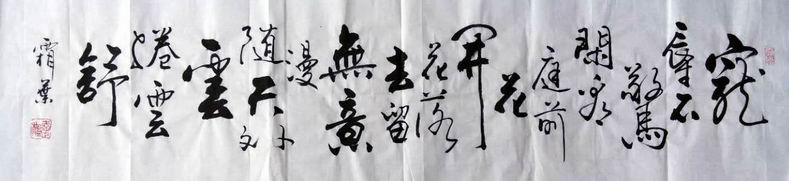 寵
辱不
驚
閑看
庭前
花
開
花落
去留
無意
漫
随天外
雲
捲雲
舒
霜葉